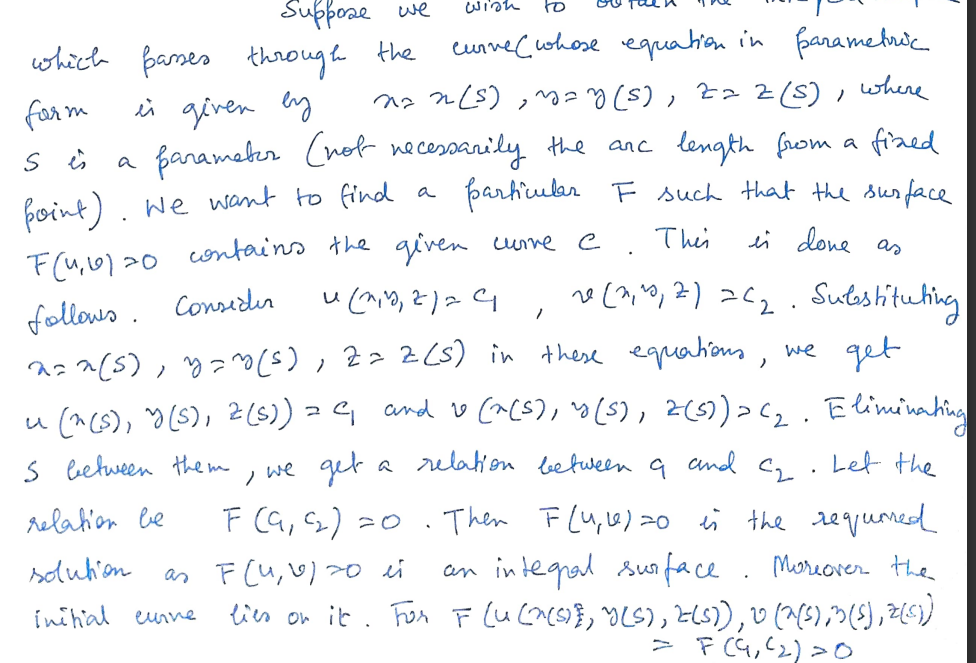 Suppose we wish to obtain the
which passes through the curve (whose equation in parametric
form is given by x = x(s), y = y(s), z = z(s), where
s is a parameter (not necessarily the arc length from a fixed
point). We want to find a particular F such that the surface
F(u,v) = 0 contains the given curve C. This is done as
follows. Consider u(x,y,z) = c₁, v(x,y,z) = c₂. Substituting
x = x(s), y = y(s), z = z(s) in these equations, we get
u(x(s), y(s), z(s)) = c₁ and v(x(s), y(s), z(s)) = c₂. Eliminating
s between them, we get a relation between c₁ and c₂. Let the
relation be F(c₁, c₂) = 0. Then F(u,v) = 0 is the required
solution as F(u,v) = 0 is an integral surface. Moreover the
initial curve lies on it. For F(u(x(s), y(s), z(s)), v(x(s), y(s), z(s))
= F(c₁, c₂) = 0